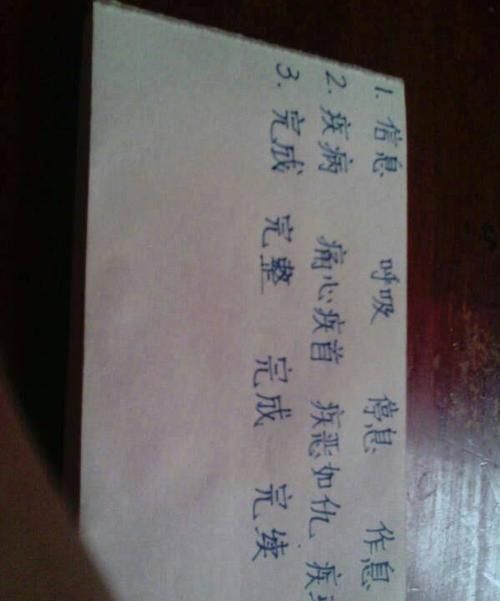 1. 信息 呼吸 停息 作息
2. 疾病 痛心疾首 疾恶如仇 疾
3. 完成 完整 完成 完续